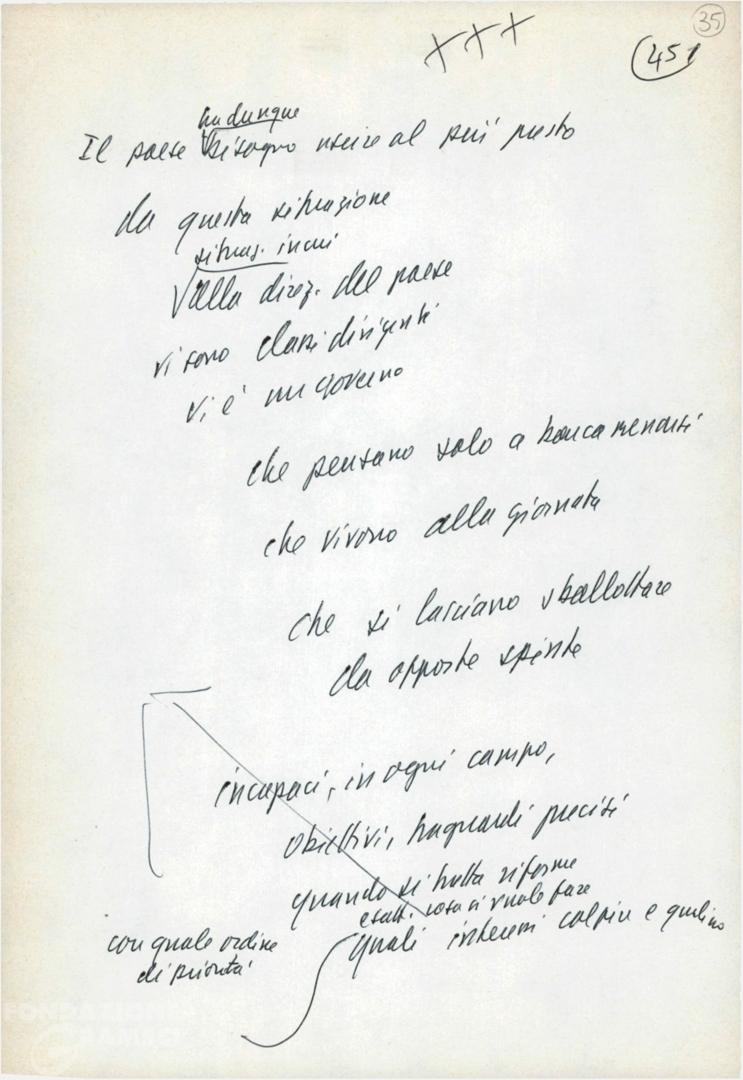 35
+++
45
ha dunque
Il paese bisogno uscire al più presto
da questa situazione
situaz. in cui
alla direz. del paese
vi sono classi dirigenti
vi è un governo
che pensano solo a barcamenarsi
che vivono alla giornata
che si lasciano sballottare
da opposte spinte
incapaci, in ogni campo,
obiettivi, traguardi precisi
quando si tratta riforme
esatt. cosa si vuole fare
quali interessi colpire e quali no
con quale ordine
di priorità
FONDAZIONE
GRAMSCI